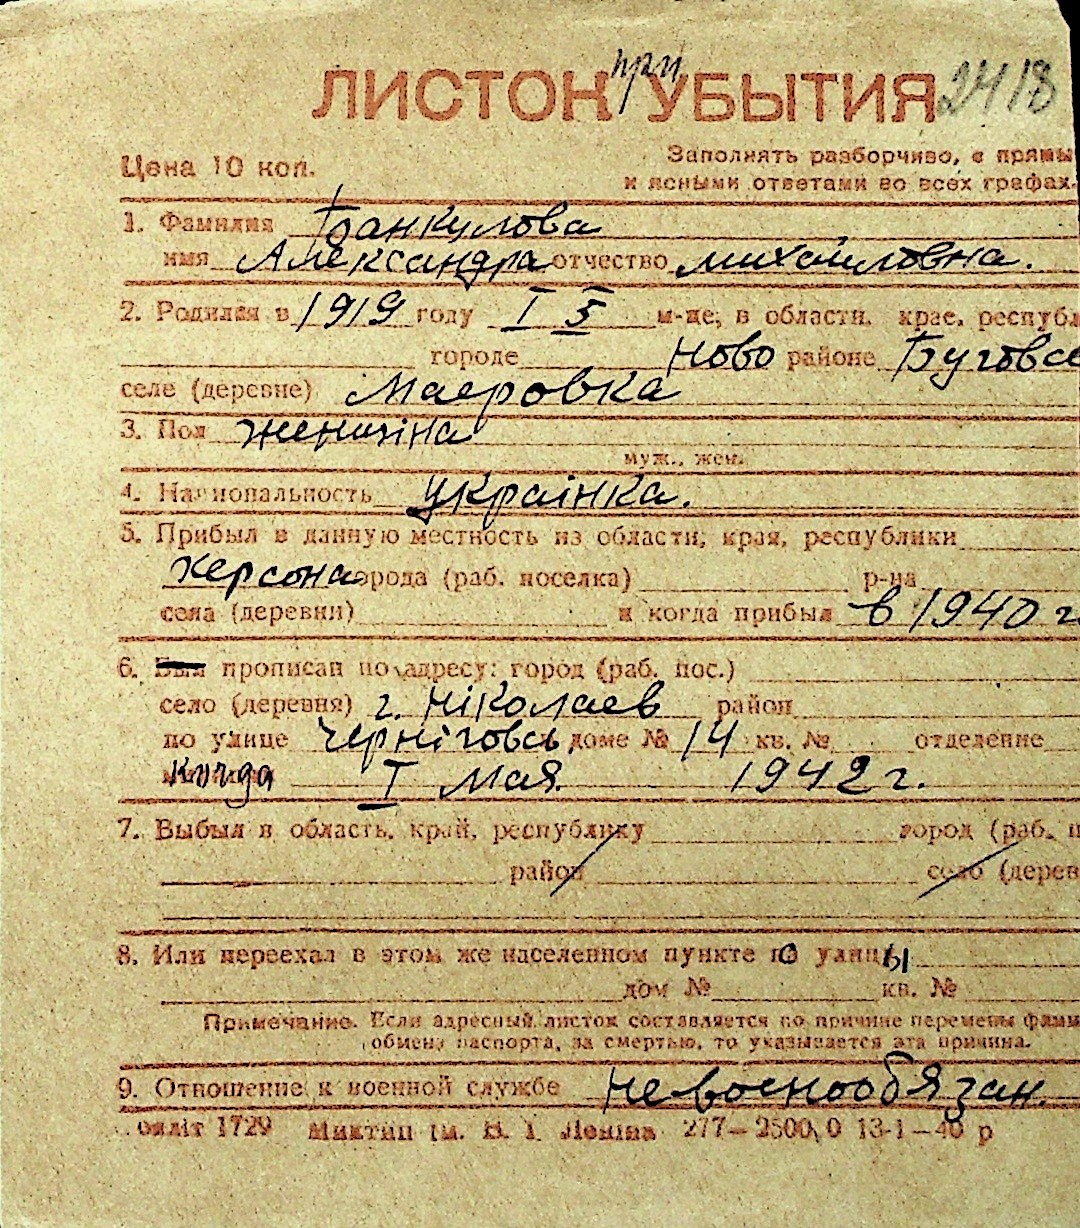 ЛИСТОК при УБЫТИЯ 2418
Цена 10 коп.
Заполнять разборчиво, с прямы
и ясными ответами во всех графах.
1. Фамилия Банкулова
имя Александра отчество Михайловна.
2. Родился в 1919 году I 5 м-це, в области, крае, республ
городе Ново районе Буговсе
селе (деревне) Маеровка
3. Пол женшіна
муж., жен.
4. Национальность українка.
5. Прибыл в данную местность из области, края, республики
Херсона города (раб. поселка) р-на
села (деревни) и когда прибыл в 1940 г.
6. Был прописан по адресу: город (раб. пос.)
село (деревня) г. Ніколаев район
по улице Черніговсь доме № 14 кв. № отделение
когда I Мая. 1942 г.
7. Выбыл в область, край, республику город (раб. п
район село (дерев
8. Или переехал в этом же населенном пункте по улицы
дом № кв. №
Примечание. Если адресный листок составляется по причине перемены фами
обмена паспорта, за смертью, то указывается эта причина.
9. Отношение к военной службе невоеннообязан.
ояліт 1729 Миктип ім. В. І. Леніна 277—2500,0 13-1—40 р